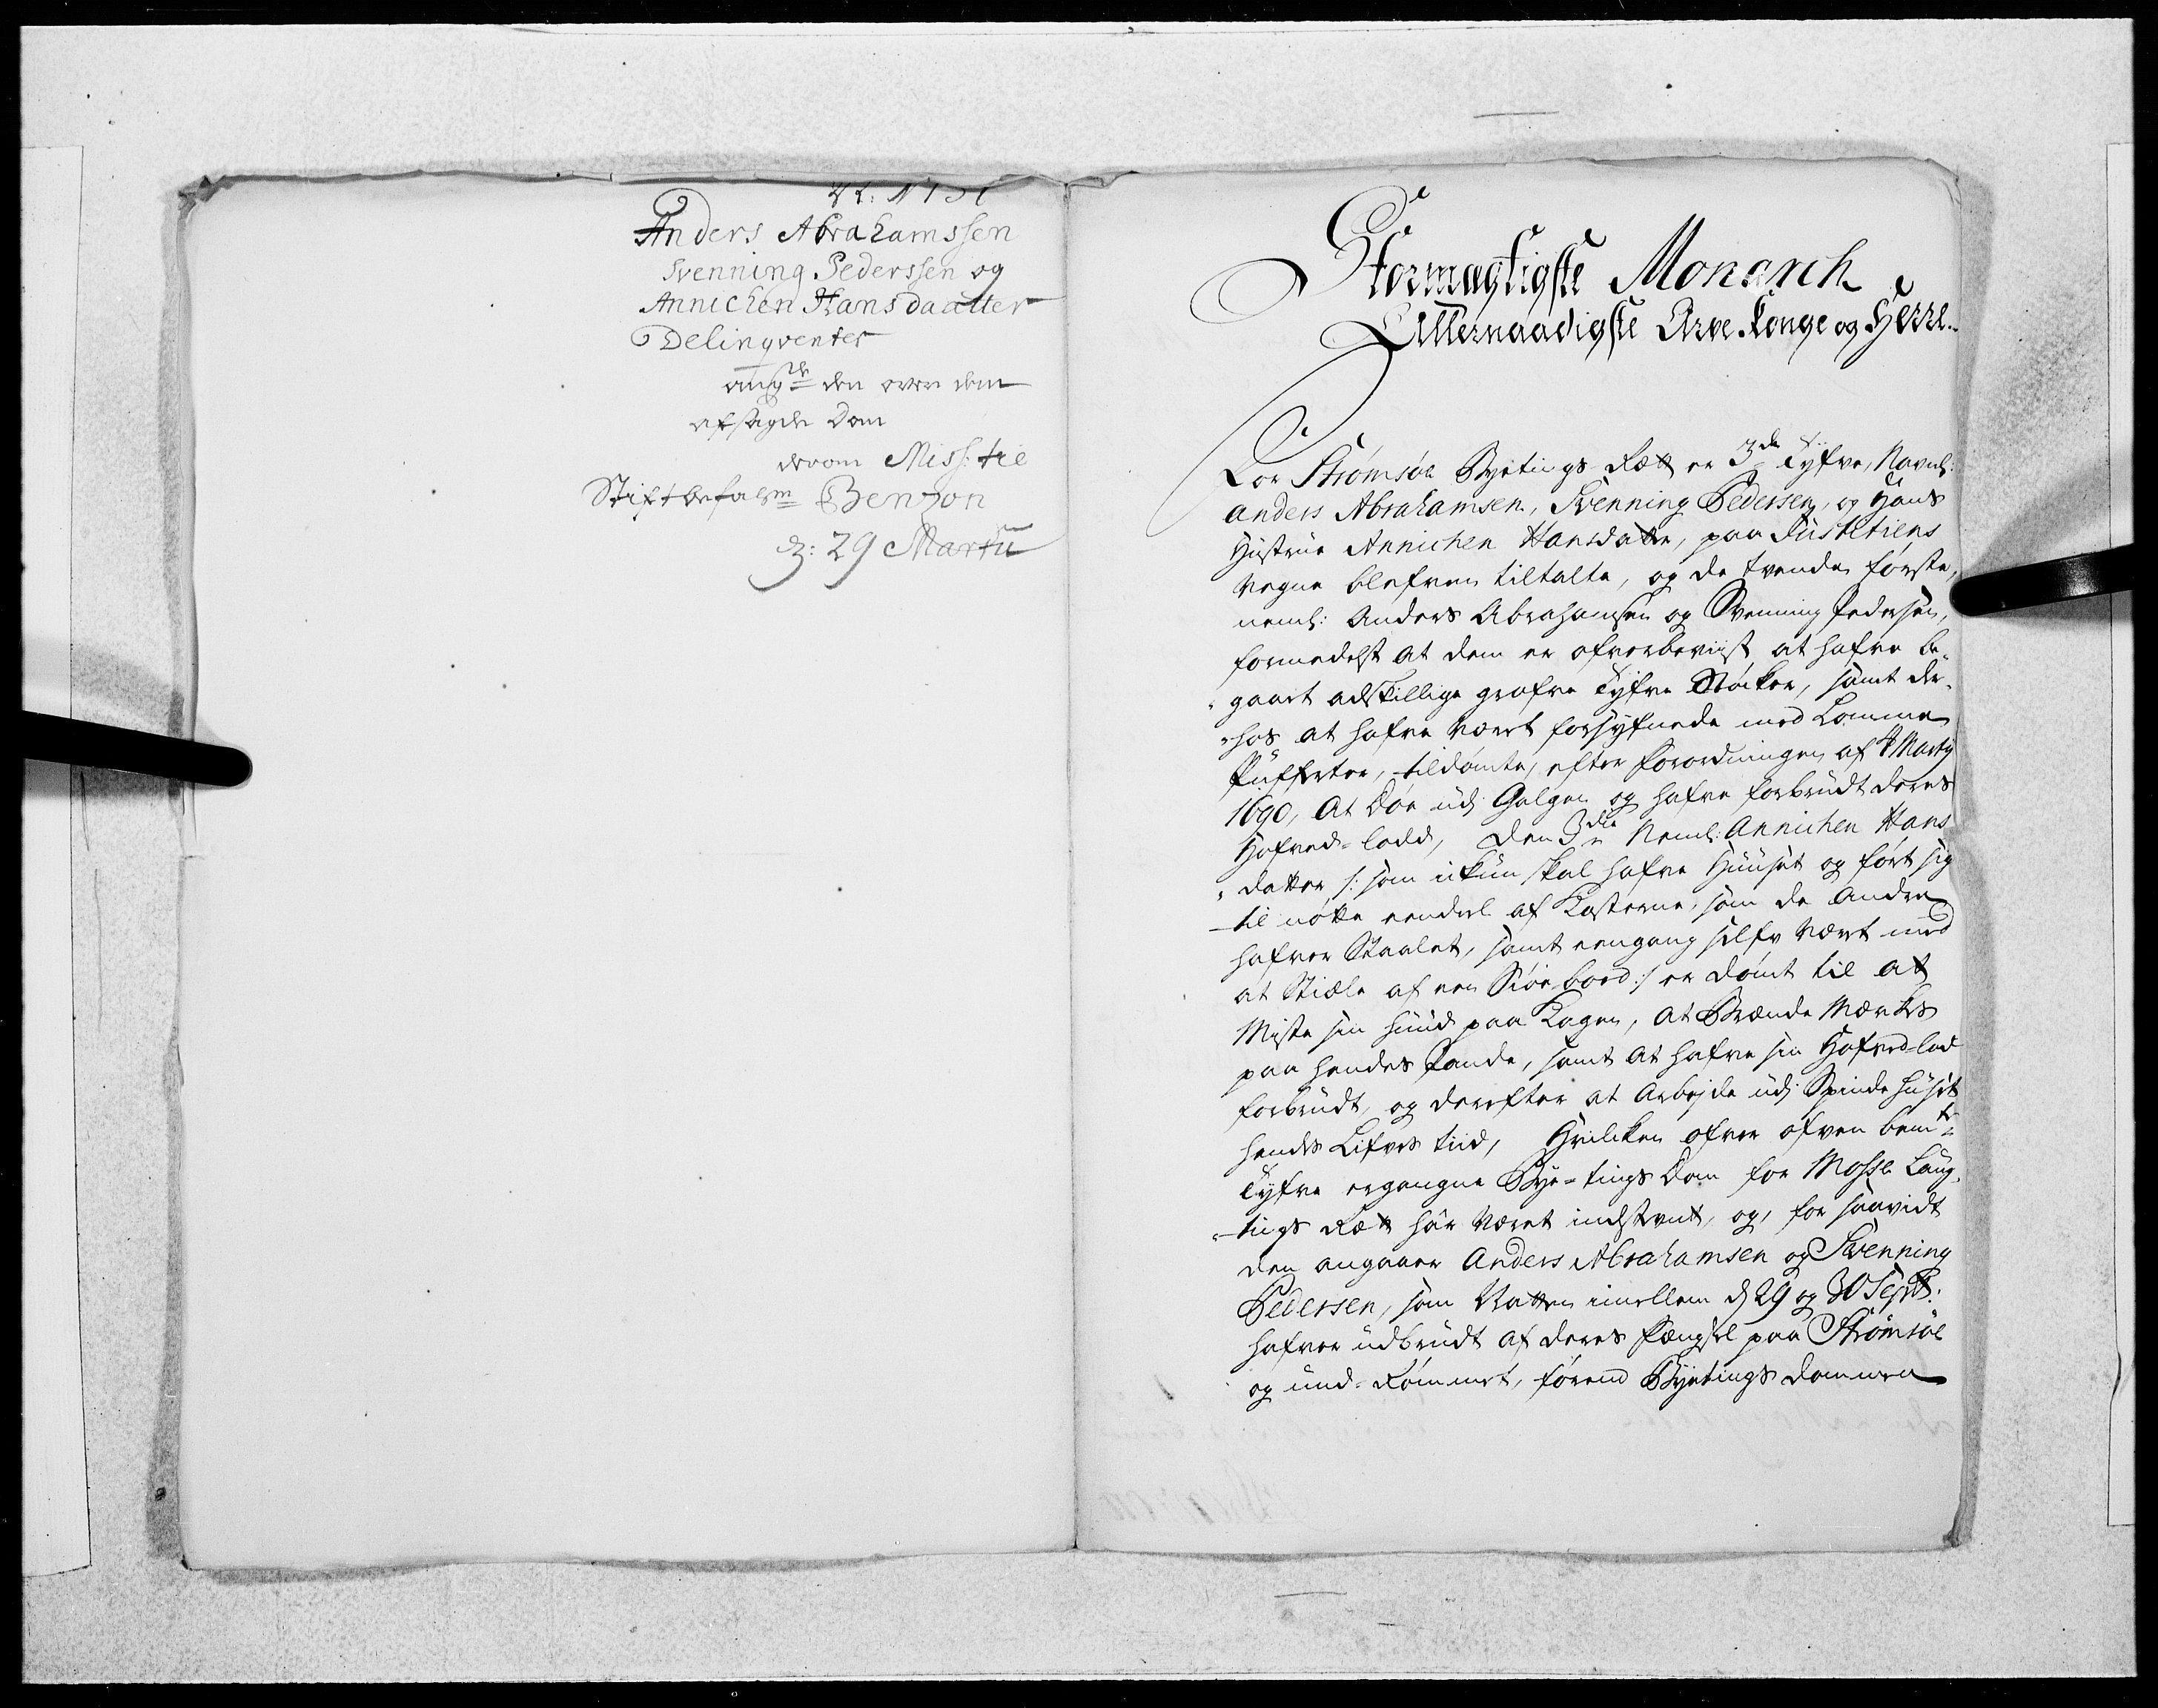 Anders Abrahamssen
Svenning Pederssen og
Annichen Hansdaatter
Delinqventer
angde den over dem
afsagde Dom
derom Miss: til
Stiftbefalsm Benzon
d: 29 Martii
Stormægtigste Monarch
Allernaadigste Arve Konge og Herre.
For Strømsøe Byetings Rætt er 3de Tyfve, Navnl:
Anders Abrahamsen, Svenning Pedersen, og Hans
Hustrue Annichen Hansdatter, paa Justitiens
Vegne blefven tiltalte, og de tvende første,
neml: Anders Abrahamsen og Svenning Pedersen,
formedelst at dem er ofverbeviist at hafve be-
gaaet adskillige grofve Tyfve Støcker, samt der-
hos at hafve været forsynede med Lomme
Pufferter, tildømte, efter Forordningen af 4 Martij
1690, At Døe udj Galgen og hafve forbrudt deres
Hofved-lodd, Den 3die Neml: Annichen Hans
datter /: som ickun skal hafve Huuset og ført sig
til nøtte eendeel af Kosterne, som de Andre
hafver Staalet, samt eengang self været med
at Stiæle af een Siøe-boed :/ er dømt til at
Miste sin Huud paa Kagen, At Brænde Mærkes
paa hendes Pande, samt at hafve sin Hofved-lod
forbrudt, og derefter at Arbejde udj Spindehuset
hendes Lifves tiid, Hvilcken ofver ofvenbemte
Tyfve ergangne Bye-tings Dom for Mosse Laug-
tings Rætt har været indstevnt, og, for saavidt
den angaaer Anders Abrahamsen og Svenning
Pedersen, som Natten imellem d 29 og 30 Septb:
hafver udbrudt af deres Fængsel paa Strømsøe
og und-Rømmet, førend Byetings Dommen